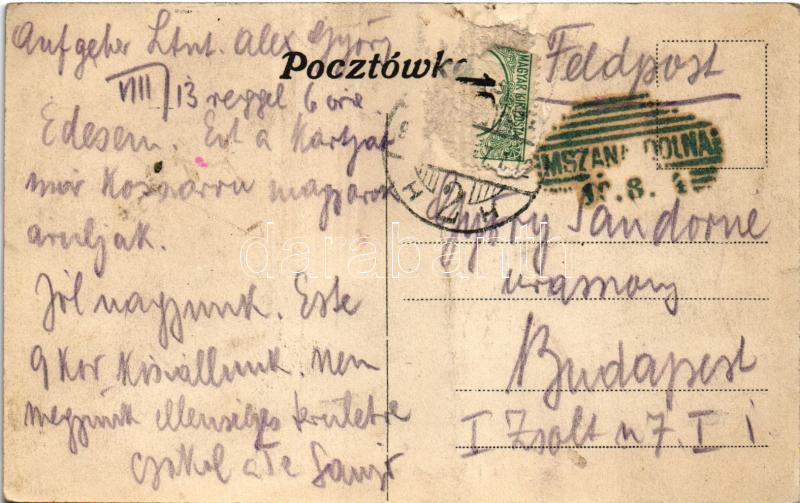 Aufgeber Ltnt. Alex Györy
Pocztówka
VIII/13 reggel 6 óra
Édesem. Ezt a kártyát
már magyarok
árulják.
Jól vagyunk. Este
9 kor kiszállunk. Nem
megyünk ellenséges területre
csókol a Te Sanyi
Feldpost
MAGYAR KIR. POSTA
MSZANA DOLNA
Györy Sándorné
úrasszony
Budapest
I Zsolt u 7. I 1
darabanth